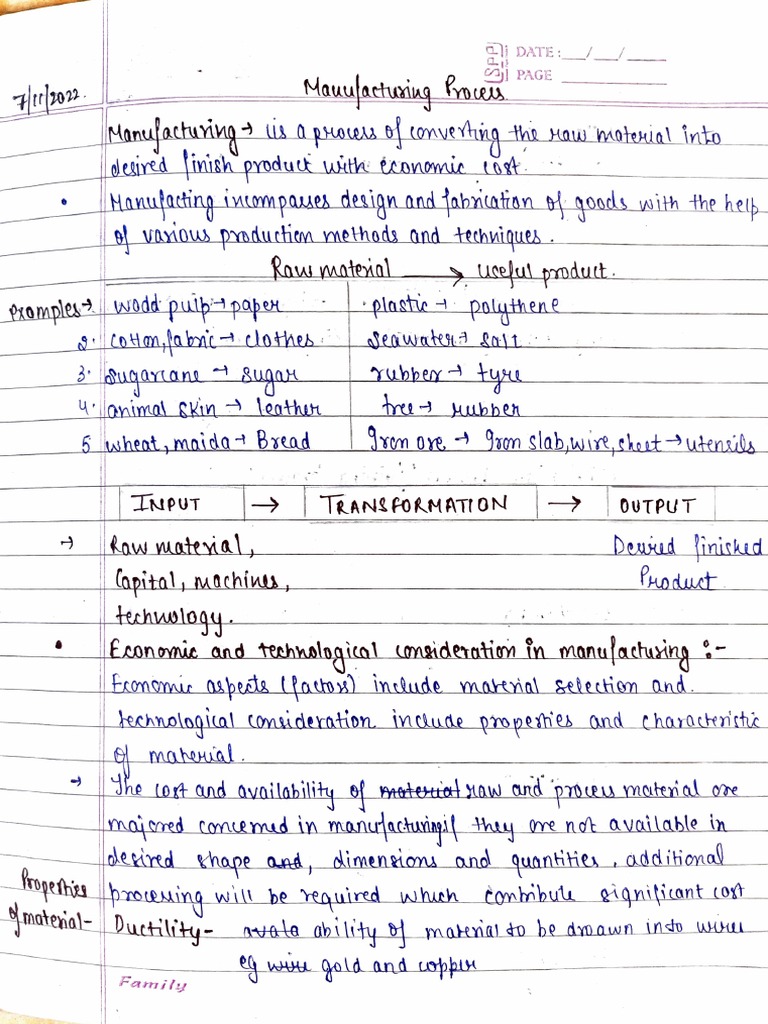 SPP DATE: __/__/____
PAGE ________
7/11/2022.
Manufacturing Process
Manufacturing → is a process of converting the raw material into
desired finish product with economic cost.
• Manufacting incompasses design and fabrication of goods with the help
of various production methods and techniques.
Raw material ⟶ useful product.
Examples → wodd pulp → paper plastic → polythene
2. cotton, fabric → clothes seawater → salt
3. sugarcane → sugar rubber → tyre
4. animal skin → leather tree → rubber
5 wheat, maida → Bread Iron ore → Iron slab, wire, sheet → utensils
INPUT → TRANSFORMATION → OUTPUT
→ Raw material, Desired finished
Capital, machines, Product
technology.
• Economic and technological consideration in manufacturing :-
Economic aspects (factors) include material selection and
technological consideration include properties and characteristic
of material.
→ The cost and availability of material raw and process material are
majored concerned in manufacturing if they are not available in
desired shape and, dimensions and quantities, additional
processing will be required which contribute significant cost
Properties
of material - Ductility - avala ability of material to be drawn into wires
eg wire gold and copper
Family